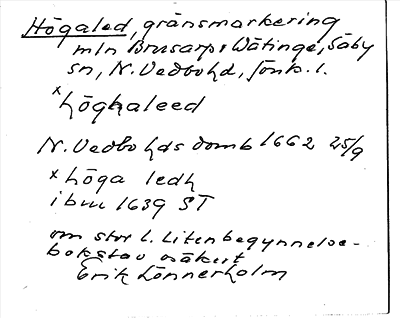 Högaled, gränsmarkering
mln Brusarp o Wätinge, Säby
sn, N. Vedbo hd, Jönk. l.
x höghaleed
N. Vedbo hds domb 1662 25/9
x höga ledh
ibm 1639 ST
om stor l. liten begynnelse-
bokstav osäkert
Erik Lönnerholm